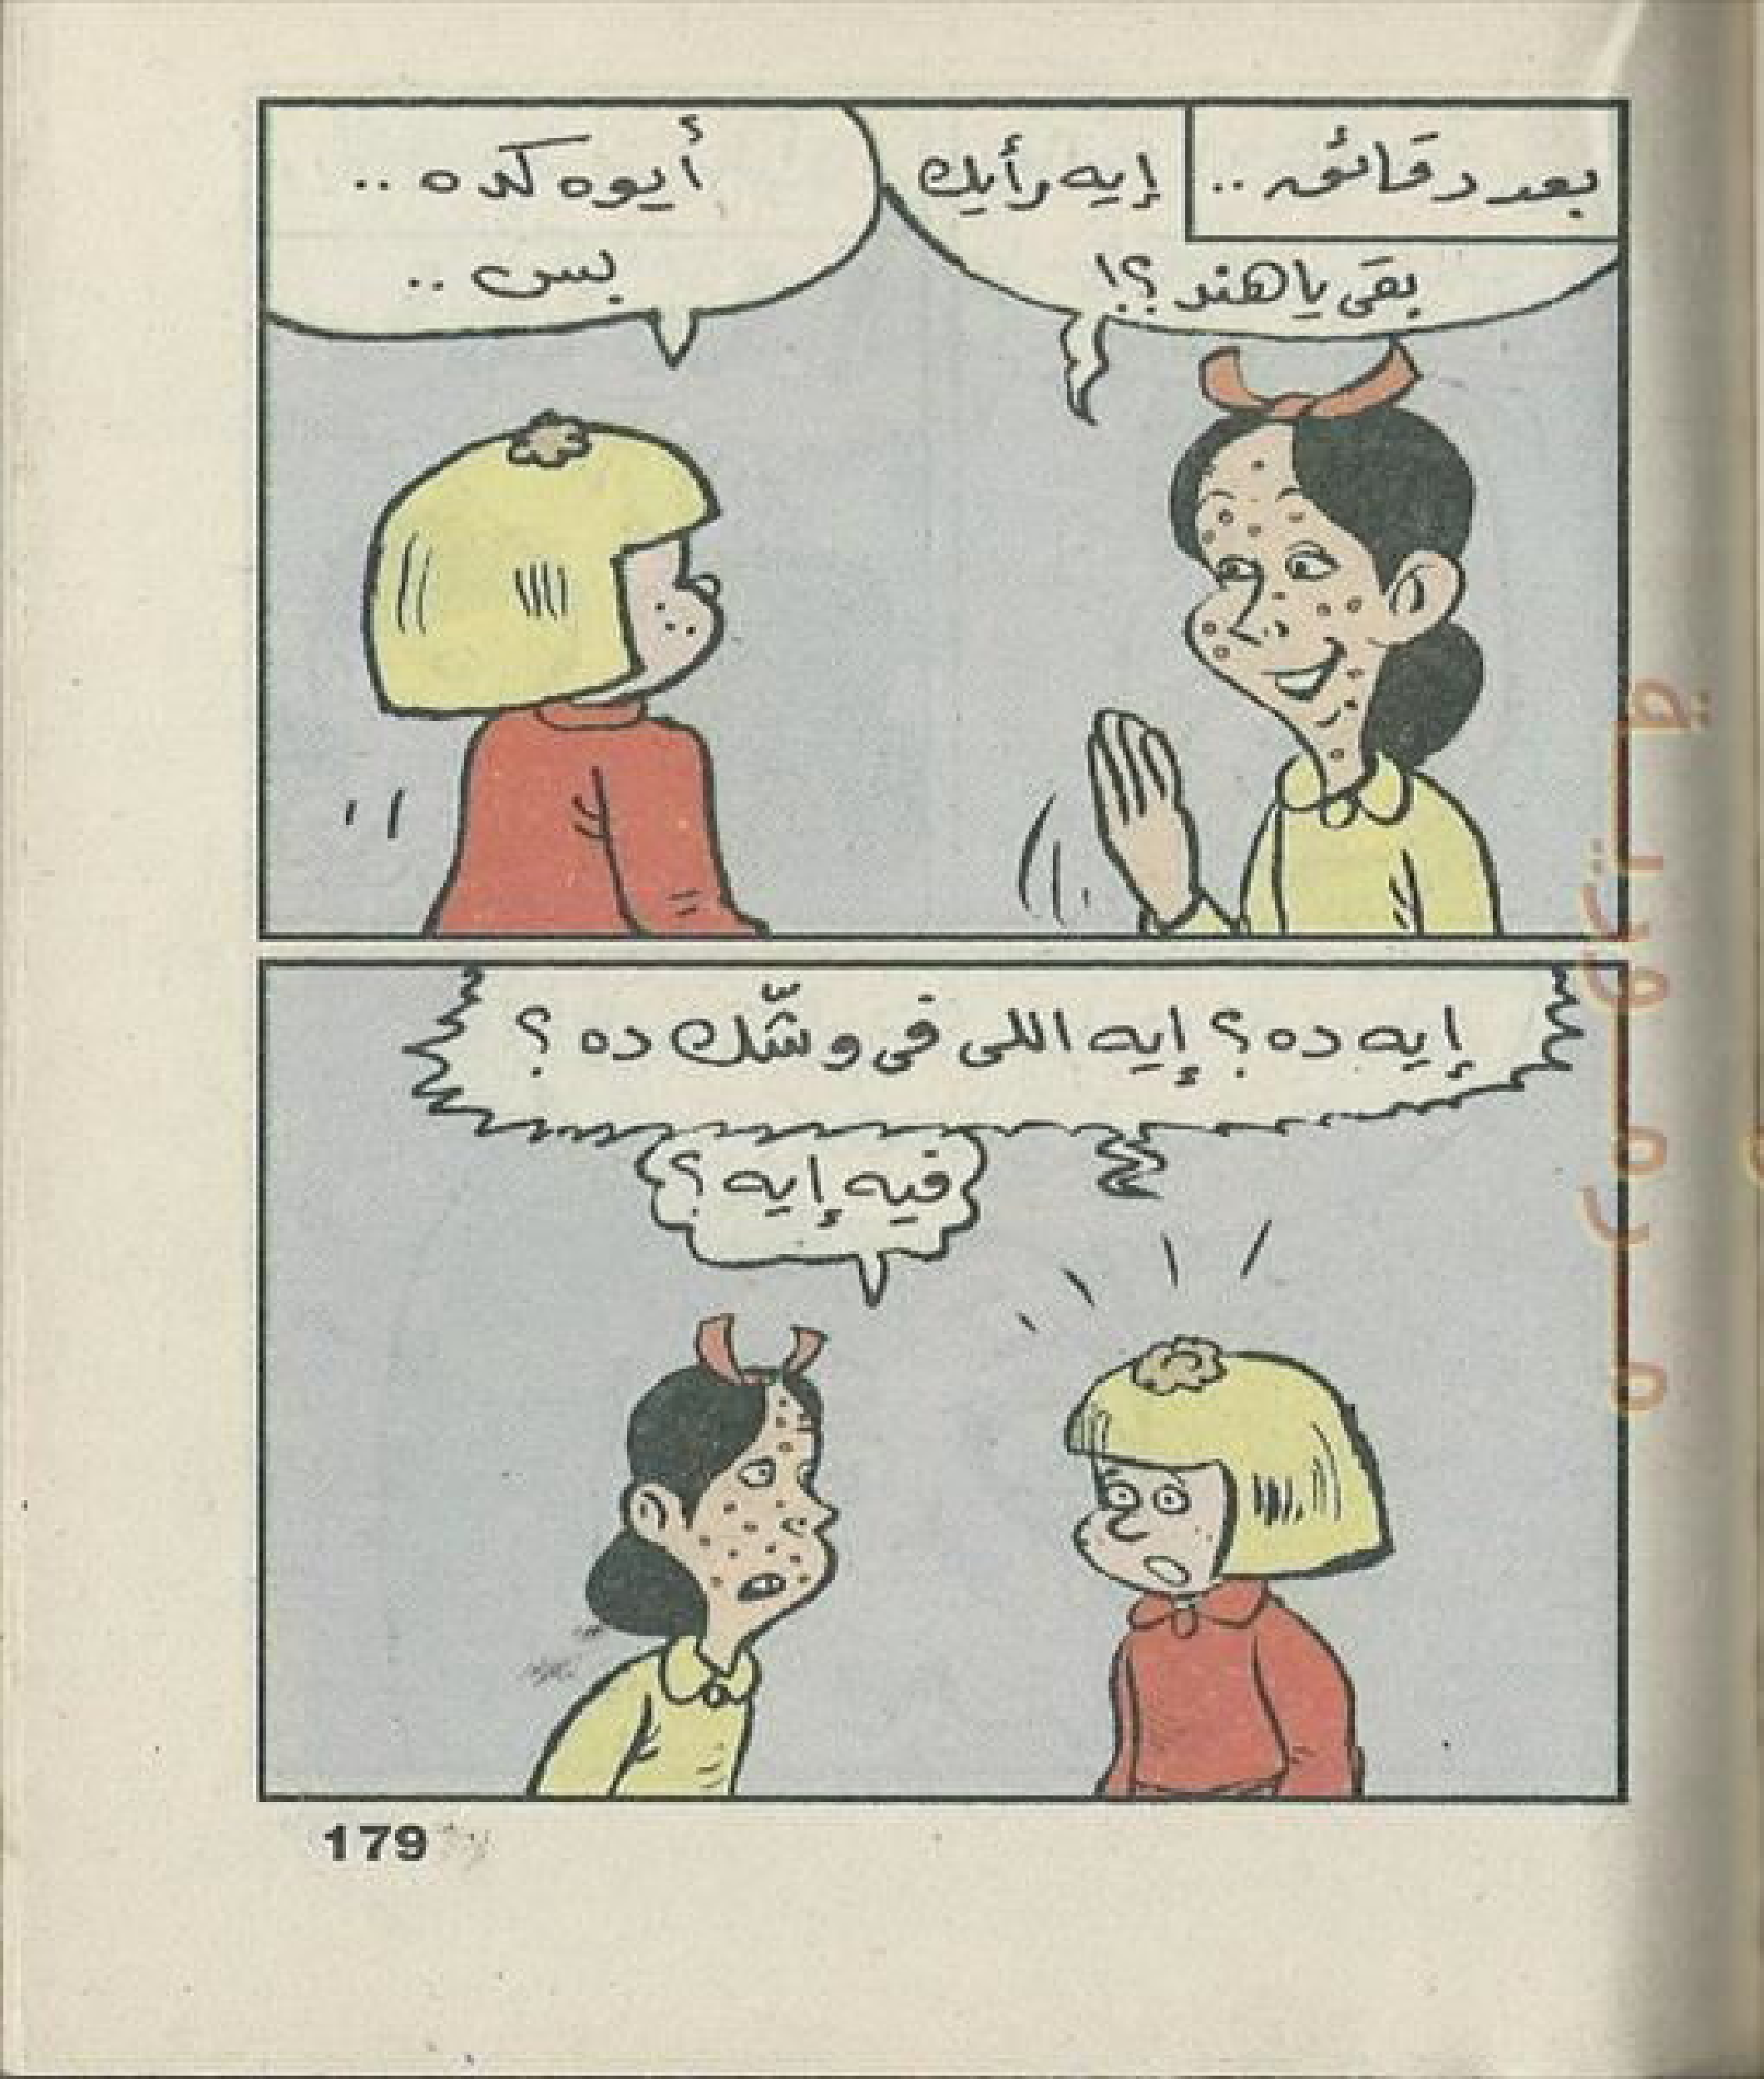 بعد دقائق ..
إيه رأيك
بقى يا هند ؟!
أيوه كده ..
بس ..
إيه ده ؟ إيه اللى فى وشّك ده ؟
فيه إيه ؟
179